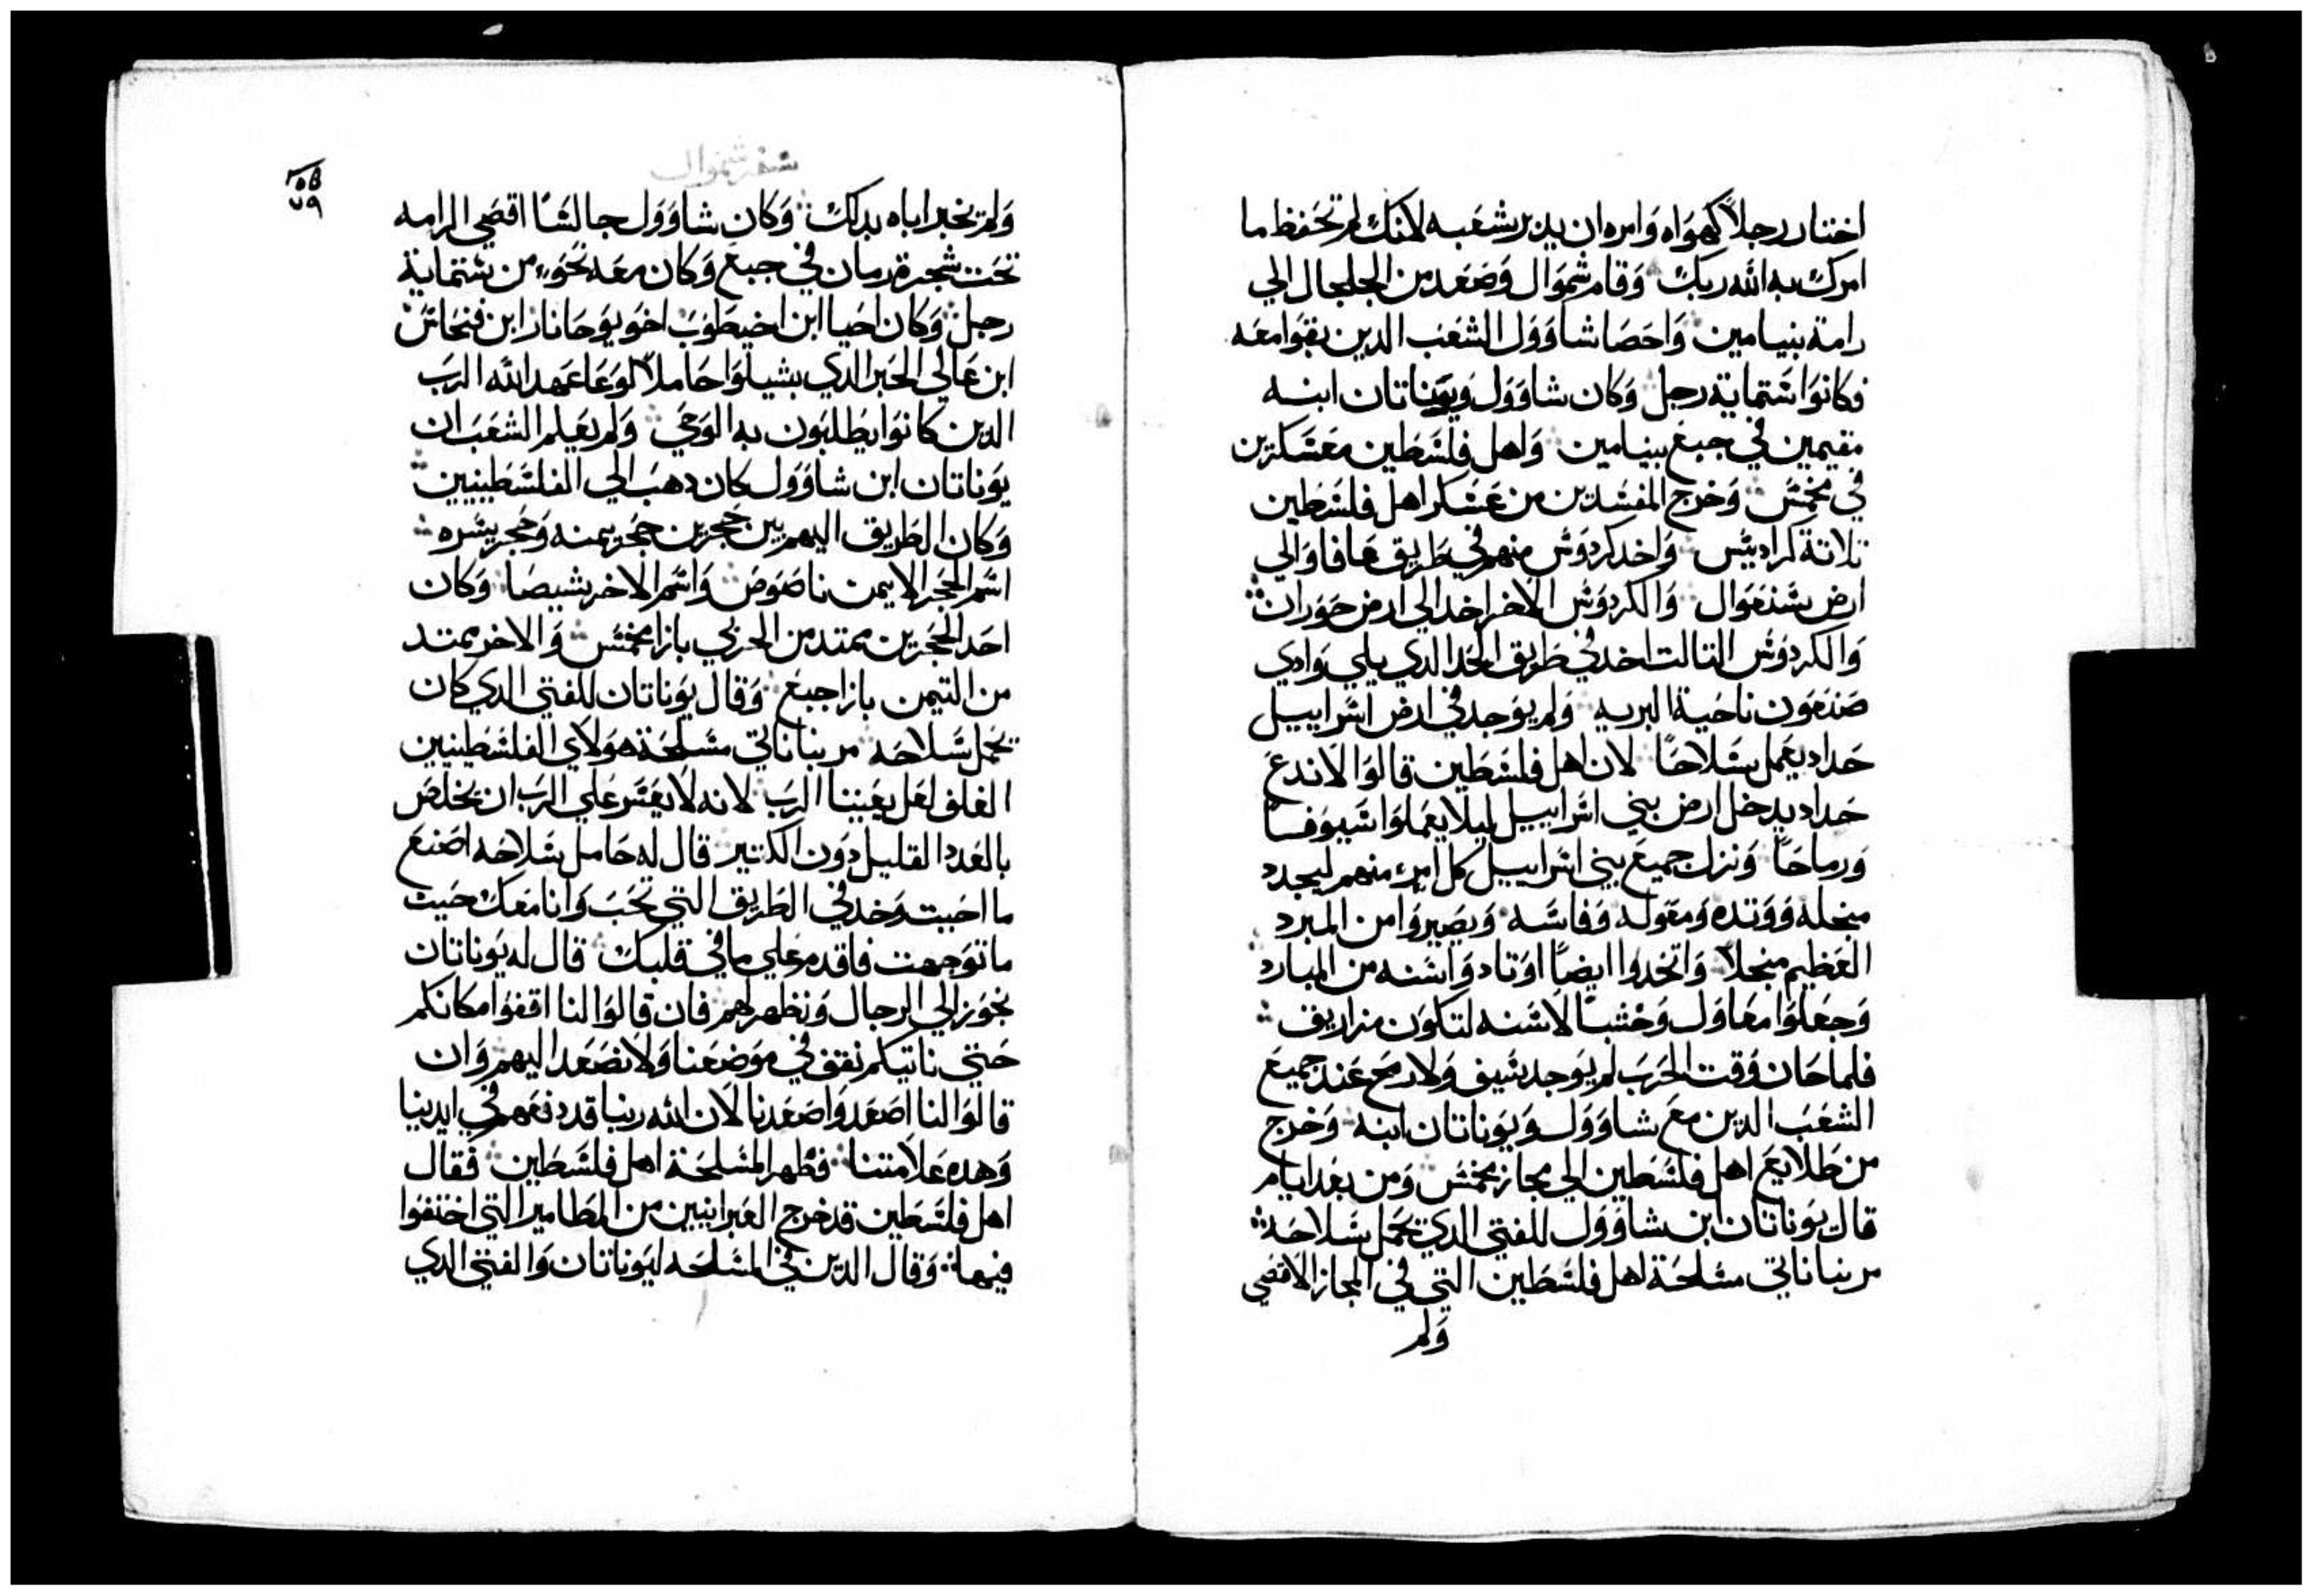 اختار رجلاً كهواه وامره ان يدبر شعبه لانك لم تحفظ ما
امرك به الله ربك وقام شموال وصعد من الجلجال الي
رامة بنيامين واحصا شاوول الشعب الدين بقوا معه
فكانوا ستماية رجل وكان شاوول ويوناتان ابنه
مقيمين في جبع بنيامين واهل فلسطين معسكرين
في مخمس وخرج المفسدين من عسكر اهل فلسطين
تلاتة كراديس واخد كردوس منهم في طريق عافا والي
ارض شنعوال والكردوس الاخر اخد الي ارض حوران
والكردوس التالت اخد في طريق الحد الدي يلي وادي
صنعون ناحية البريه ولم يوجد في ارض اسراييل
حداد يعمل سلاحًا لان اهل فلسطين قالوا لا ندع
حداد يدخل ارض بني اسراييل ليلا يعملوا سيوفًا
ورماحًا ونزل جميع بني اسراييل كل امرء منهم ليجدد
منجله ووتده ومعوله وفاسه ويصيروا من المبرد
العظيم منجلاً واتخدوا ايضًا اوتاد واسنه من المبارد
وجعلوا معاول وخشبًا لاسنه لتكون مزاريف
فلما حان وقت الحرب لم يوجد سيف ولا رمح عند جميع
الشعب الدين مع شاوول ويوناتان ابنه وخرج
من طلايع اهل فلسطين الي مجاز مخمس ومن بعد ايام
قال يوناتان ابن شاوول للفتي الدي يحمل سلاحه
مر بنا ناتي مسلحة اهل فلسطين التي في المجاز الاقصي
ولم
سفر شموال
٧٩
ولم يخبر اباه بدلك وكان شاوول جالسًا اقصي الرامه
تحت شجرة رمان في جبع وكان معه نحوء من ستماية
رجل وكان احيا ابن اخيطوب اخو يوحاناز ابن فنحاس
ابن عالي الحبر الدي بشيلوا حاملاً لوعا عهد الله الرب
الدين كانوا يطلبون به الوحي ولم يعلم الشعب ان
يوناتان ابن شاوول كان دهب الي الفلسطينيين
وكان الطريق اليهم بين حجرين حجر يمنه وحجر يسره
اسم الحجر الايمن ناصوص واسم الاخر شيصا وكان
احد الحجرين يمتد من الحربي بازا مخمس والاخر يمتد
من التيمن بازا جبع وقال يوناتان للفتي الدي كان
يحمل سلاحه مر بنا ناتي مسلحة هولاي الفلسطينيين
الغلف لعل يعيننا الرب لانه لا يعسر علي الرب ان يخلص
بالعدد القليل دون الكتير قال له حامل سلاحه اصنع
ما احببت وخد في الطريق التي تحب وانا معك حيت
ما توجهت فاقدم علي ما في قلبك قال له يوناتان
نجوز الي الرجال ونظهر لهم فان قالوا لنا اقفوا مكانكم
حتي ناتيكم نقف في موضعنا ولا نصعد اليهم وان
قالوا لنا اصعدوا صعدنا لان الله ربنا قد دفعهم في ايدينا
وهده علامتنا فظهر المسلحة اهل فلسطين فقال
اهل فلسطين قد خرج العبرانيين من المطامير التي اختفوا
فيها وقال الدين في المسلحه ليوناتان والفتي الدي